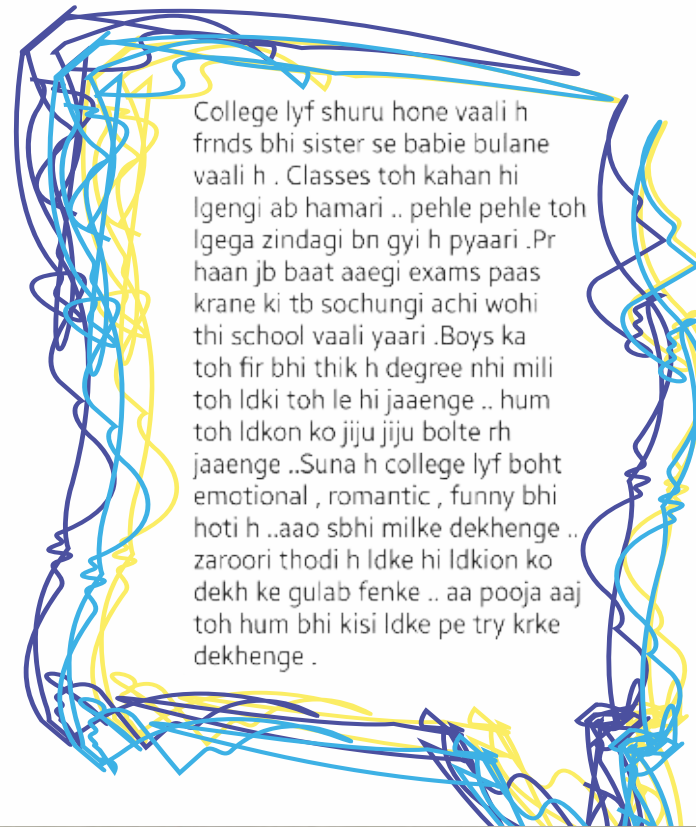 College lyf shuru hone vaali h
frnds bhi sister se babie bulane
vaali h . Classes toh kahan hi
lgengi ab hamari .. pehle pehle toh
lgega zindagi bn gyi h pyaari .Pr
haan jb baat aaegi exams paas
krane ki tb sochungi achi wohi
thi school vaali yaari .Boys ka
toh fir bhi thik h degree nhi mili
toh ldki toh le hi jaaenge .. hum
toh ldkon ko jiju jiju bolte rh
jaaenge ..Suna h college lyf boht
emotional , romantic , funny bhi
hoti h ..aao sbhi milke dekhenge ..
zaroori thodi h ldke hi ldkion ko
dekh ke gulab fenke .. aa pooja aaj
toh hum bhi kisi ldke pe try krke
dekhenge .